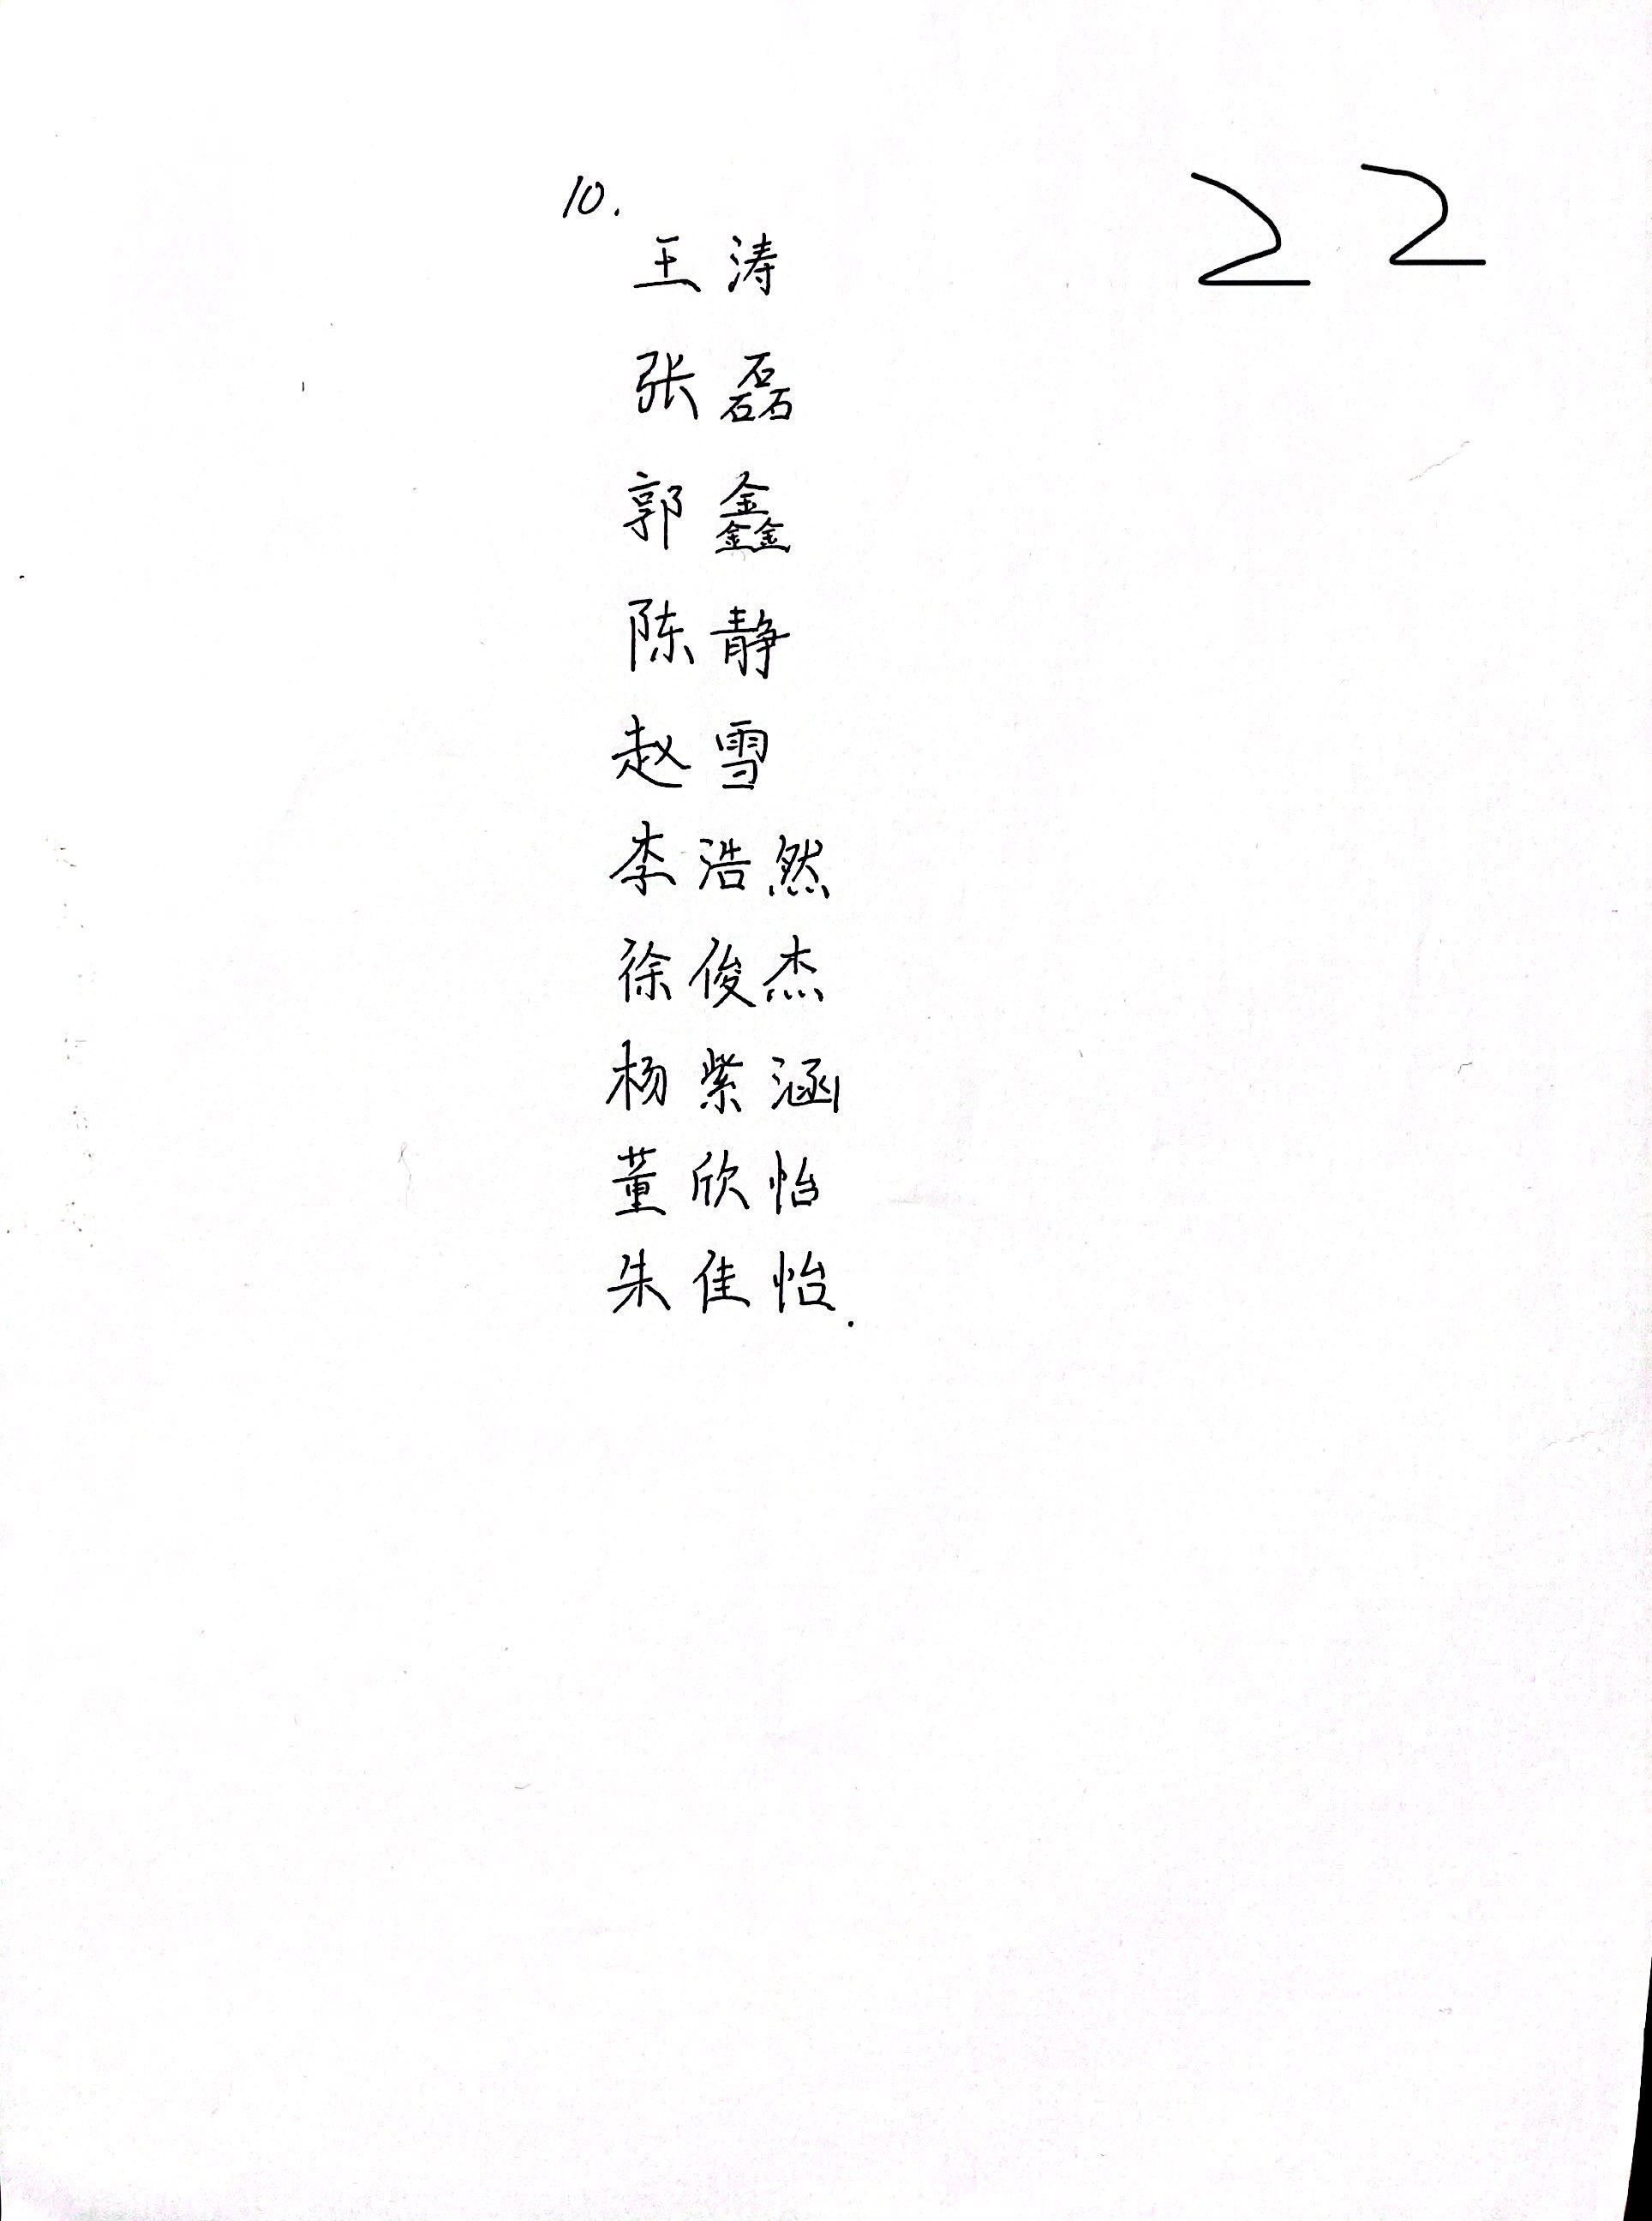 10.
22
王涛
张磊
郭鑫
陈静
赵雪
李浩然
徐俊杰
杨紫涵
董欣怡
朱佳怡.